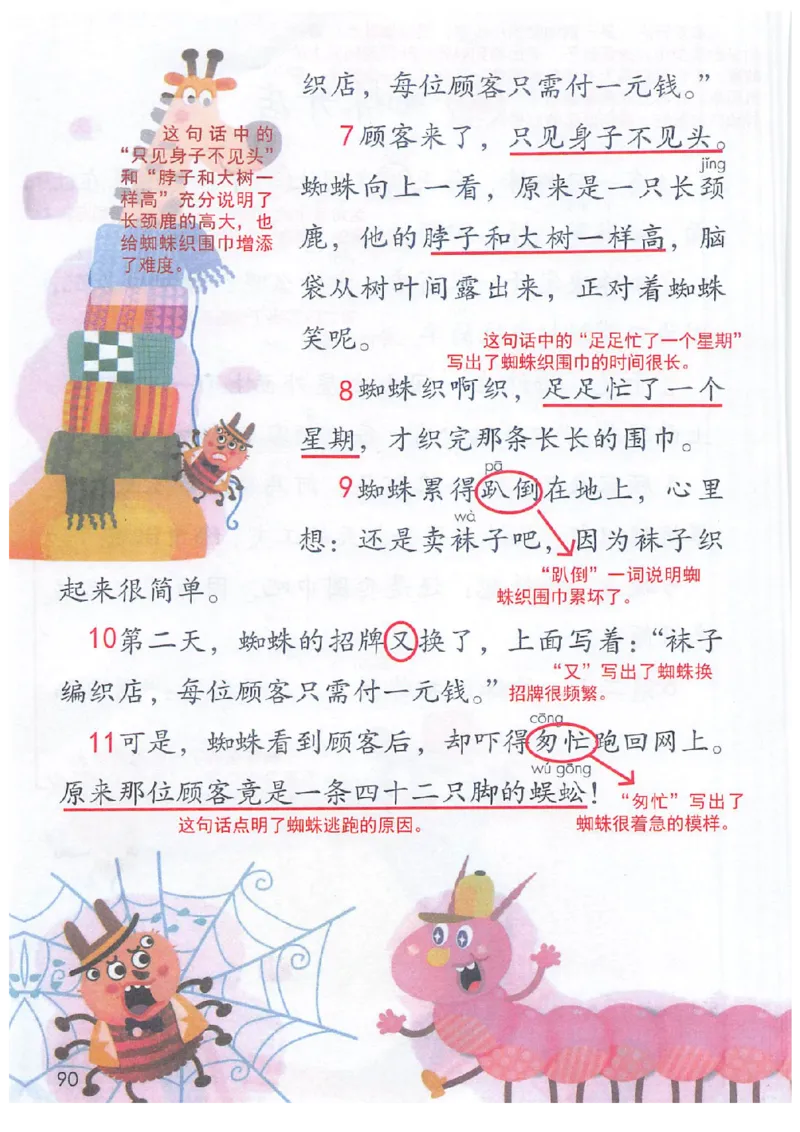 织店，每位顾客只需付一元钱。”
这句话中的
“只见身子不见头”
和“脖子和大树一
样高”充分说明了
长颈鹿的高大，也
给蜘蛛织围巾增添
了难度。
7 顾客来了，只见身子不见头。
jǐng
蜘蛛向上一看，原来是一只长颈
鹿，他的脖子和大树一样高，脑
袋从树叶间露出来，正对着蜘蛛
笑呢。
这句话中的“足足忙了一个星期”
写出了蜘蛛织围巾的时间很长。
8 蜘蛛织啊织，足足忙了一个
星期，才织完那条长长的围巾。
pā
9 蜘蛛累得趴倒在地上，心里
wà
想：还是卖袜子吧，因为袜子织
“趴倒”一词说明蜘
蛛织围巾累坏了。
起来很简单。
10 第二天，蜘蛛的招牌又换了，上面写着：“袜子
“又”写出了蜘蛛换
招牌很频繁。
编织店，每位顾客只需付一元钱。”
cōng
11 可是，蜘蛛看到顾客后，却吓得匆忙跑回网上。
wú gōng
原来那位顾客竟是一条四十二只脚的蜈蚣！
“匆忙”写出了
蜘蛛很着急的模样。
这句话点明了蜘蛛逃跑的原因。
90